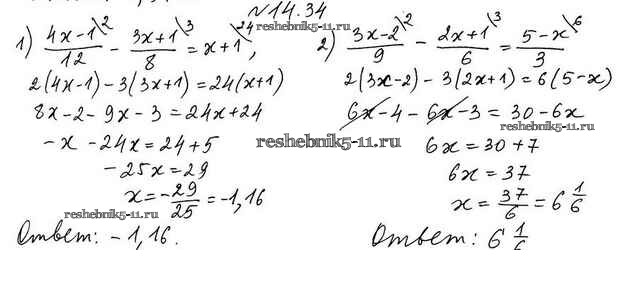 №14.34
1) (4x-1)/12 \2 - (3x+1)/8 \3 = x+1 \24,
2(4x-1)-3(3x+1)=24(x+1)
8x-2-9x-3=24x+24
-x-24x=24+5
-25x=29
x=-29/25=-1,16
Ответ: -1,16.
2) (3x-2)/9 \2 - (2x+1)/6 \3 = (5-x)/3 \6
2(3x-2)-3(2x+1)=6(5-x)
6x-4-6x-3=30-6x
6x=30+7
6x=37
x=37/6=6 1/6
Ответ: 6 1/6
reshebnik5-11.ru
reshebnik5-11.ru
reshebnik5-11.ru
reshebnik5-11.ru